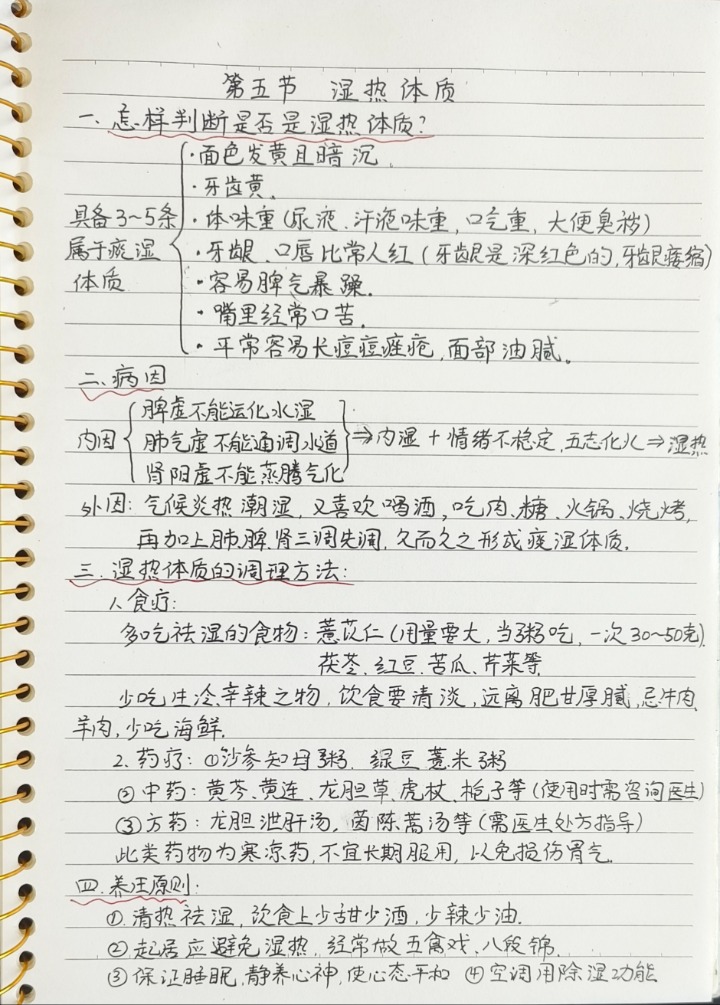 第五节 湿热体质
一、怎样判断是否是湿热体质?
·面色发黄且暗沉。
·牙齿黄。
具备3~5条
·体味重(尿液、汗液味重,口气重,大便臭秽)
属于痰湿
·牙龈、口唇比常人红(牙龈是深红色的,牙龈萎缩)
体质
·容易脾气暴躁。
·嘴里经常口苦。
·平常容易长痘痘痤疮,面部油腻。
二、病因
脾虚不能运化水湿
内因 肺气虚不能通调水道 ⇒内湿+情绪不稳定,五志化火⇒湿热
肾阳虚不能蒸腾气化
外因:气候炎热潮湿,又喜欢喝酒,吃肉、糖、火锅、烧烤,
再加上肺脾肾三调失调,久而久之形成痰湿体质.
三、湿热体质的调理方法:
1.食疗:
多吃祛湿的食物:薏苡仁(用量要大,当粥吃,一次30~50克)
茯苓、红豆、苦瓜、芹菜等
少吃生冷辛辣之物,饮食要清淡,远离肥甘厚腻,忌牛肉、
羊肉,少吃海鲜.
2.药疗:①沙参知母粥、绿豆薏米粥
②中药:黄芩、黄连、龙胆草、虎杖、栀子等(使用时需咨询医生)
③方药:龙胆泄肝汤,茵陈蒿汤等(需医生处方指导)
此类药物为寒凉药,不宜长期服用,以免损伤胃气.
四.养生原则:
①清热祛湿,饮食上少甜少酒,少辣少油.
②起居应避免湿热,经常做五禽戏、八段锦.
③保证睡眠,静养心神,使心态平和 ④空调用除湿功能